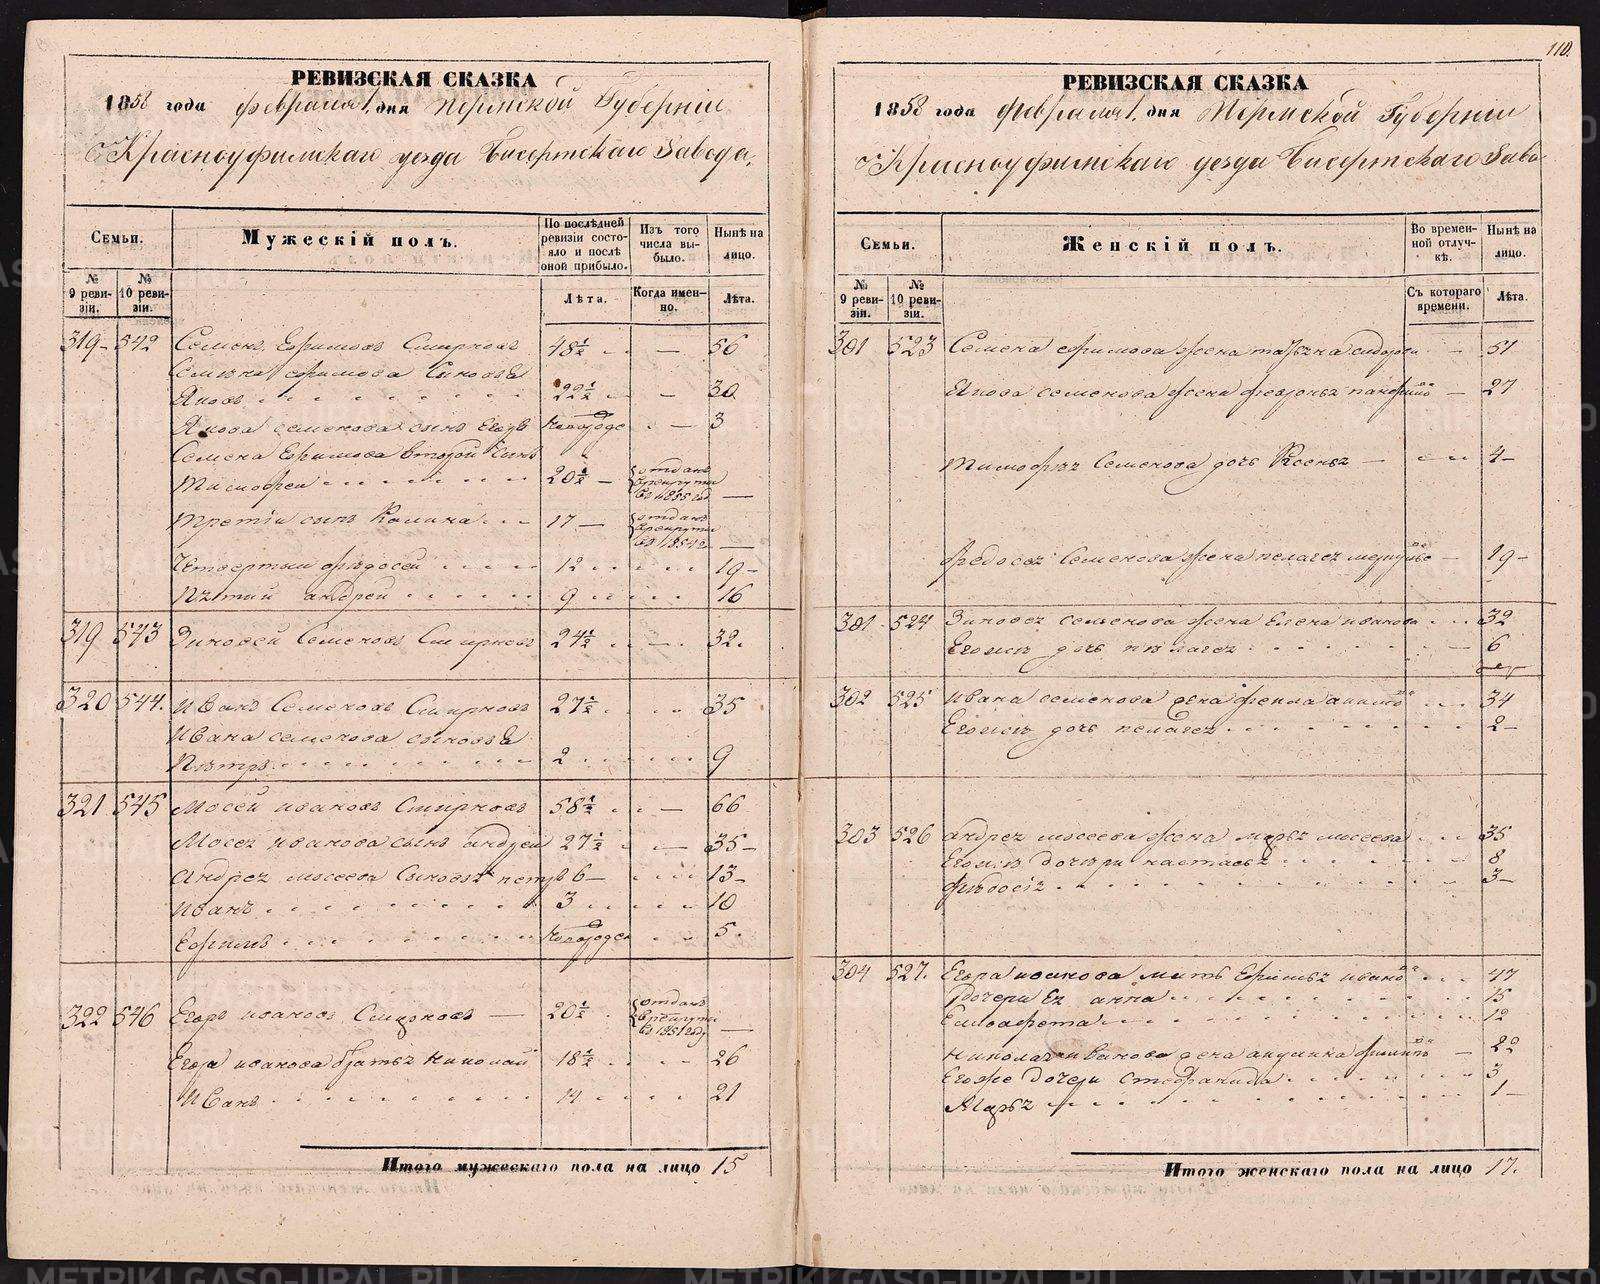 РЕВИЗСКАЯ СКАЗКА
1858 года февраля 1 дня Пермской Губернии
Красноуфимскаго уезда Бисертскаго Завода,
Семьи.
Мужескій полъ.
По послѣдней ревизіи состояло и послѣ оной прибыло.
Изъ того числа выбыло.
Нынѣ на лицо.
№ 9 ревизіи.
№ 10 ревизіи.
Лѣта.
Когда именно.
Лѣта.
319 - 542 Семенъ Ефимовъ Смирновъ 48½ — 56
Семена Ефимова Сыновья
Яковъ 22½ - 30
Якова семенова сынъ Егоръ новорож — 3
Семена Ефимова второй сынъ
Тимофей 20½ — отданъ в рекруты въ 1855 год —
третій сынъ Калина 17 — отданъ в рекруты въ 1854 —
Четвертый Федосей 12 19 -
Пятый андрей 9 16
319 543 Зиновей Семеновъ Смирновъ 24½ 32.
320 544. Иванъ Семеновъ Смирновъ 27½ 35
Ивана семенова сыновья
Петръ 2 9
321 545 Мосей ивановъ Смирновъ 58½ — 66
Мосея иванова сынъ андрей 27½ — 35 -
Андрея мосеева Сыновья петръ 6 — 13 -
иванъ 3 10
Ефимъ новорожде 5.
322 546 Егоръ ивановъ Смирновъ — 20½ отданъ в рекруты въ 1851 году —
Егора иванова братья николай 18½ 26
Иванъ 14 21
Итого мужескаго пола на лицо 15
110.
РЕВИЗСКАЯ СКАЗКА
1858 года февраля 1 дня Пермской Губернии
Красноуфимскаго уезда Бисертскаго Заво
Семьи.
Женскій полъ.
Во временной отлучкѣ.
Нынѣ на лицо.
№ 9 ревизіи.
№ 10 ревизіи.
Съ котораго времени.
Лѣта.
301 523 Семена ефимова жена татьяна сидоров — 51
Якова семенова жена 27
Тимофея Семенова дочь Ксенья — 4 -
Федосея Семенова жена пелагея 19 -
301 524 Зиновея семенова жена Елена иванова 32
Егожъ дочь пелагея — 6
302 525 ивана семенова жена 34
Егожъ дочь пелагея 2 -
303 526 андрея мосеева жена марья мосеева 35
Егожъ дочери настасья 8
Федосья 3 -
304 527. Егора иванова мать 47
Дочери Ея анна 15
Елисафета 12
николая иванова жена акулина филип — 22
Егоже дочери Стефанида 3
Марья 1 -
Итого женскаго пола на лицо 17.
METRIKI.GASO-URAL.RU